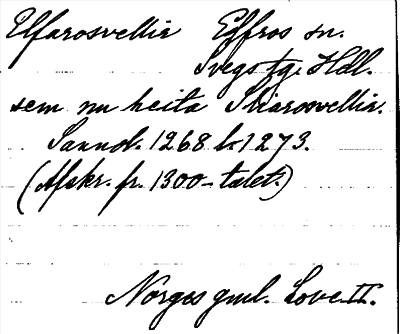 Elfarosvellir Effros sn.
Svegs tg. Hdl.
sem nu heita Skiarosvellir.
Sannok. 1268 b. 1273.
(Afskr. fr. 1300-talet.)
Norges gml. Love II.